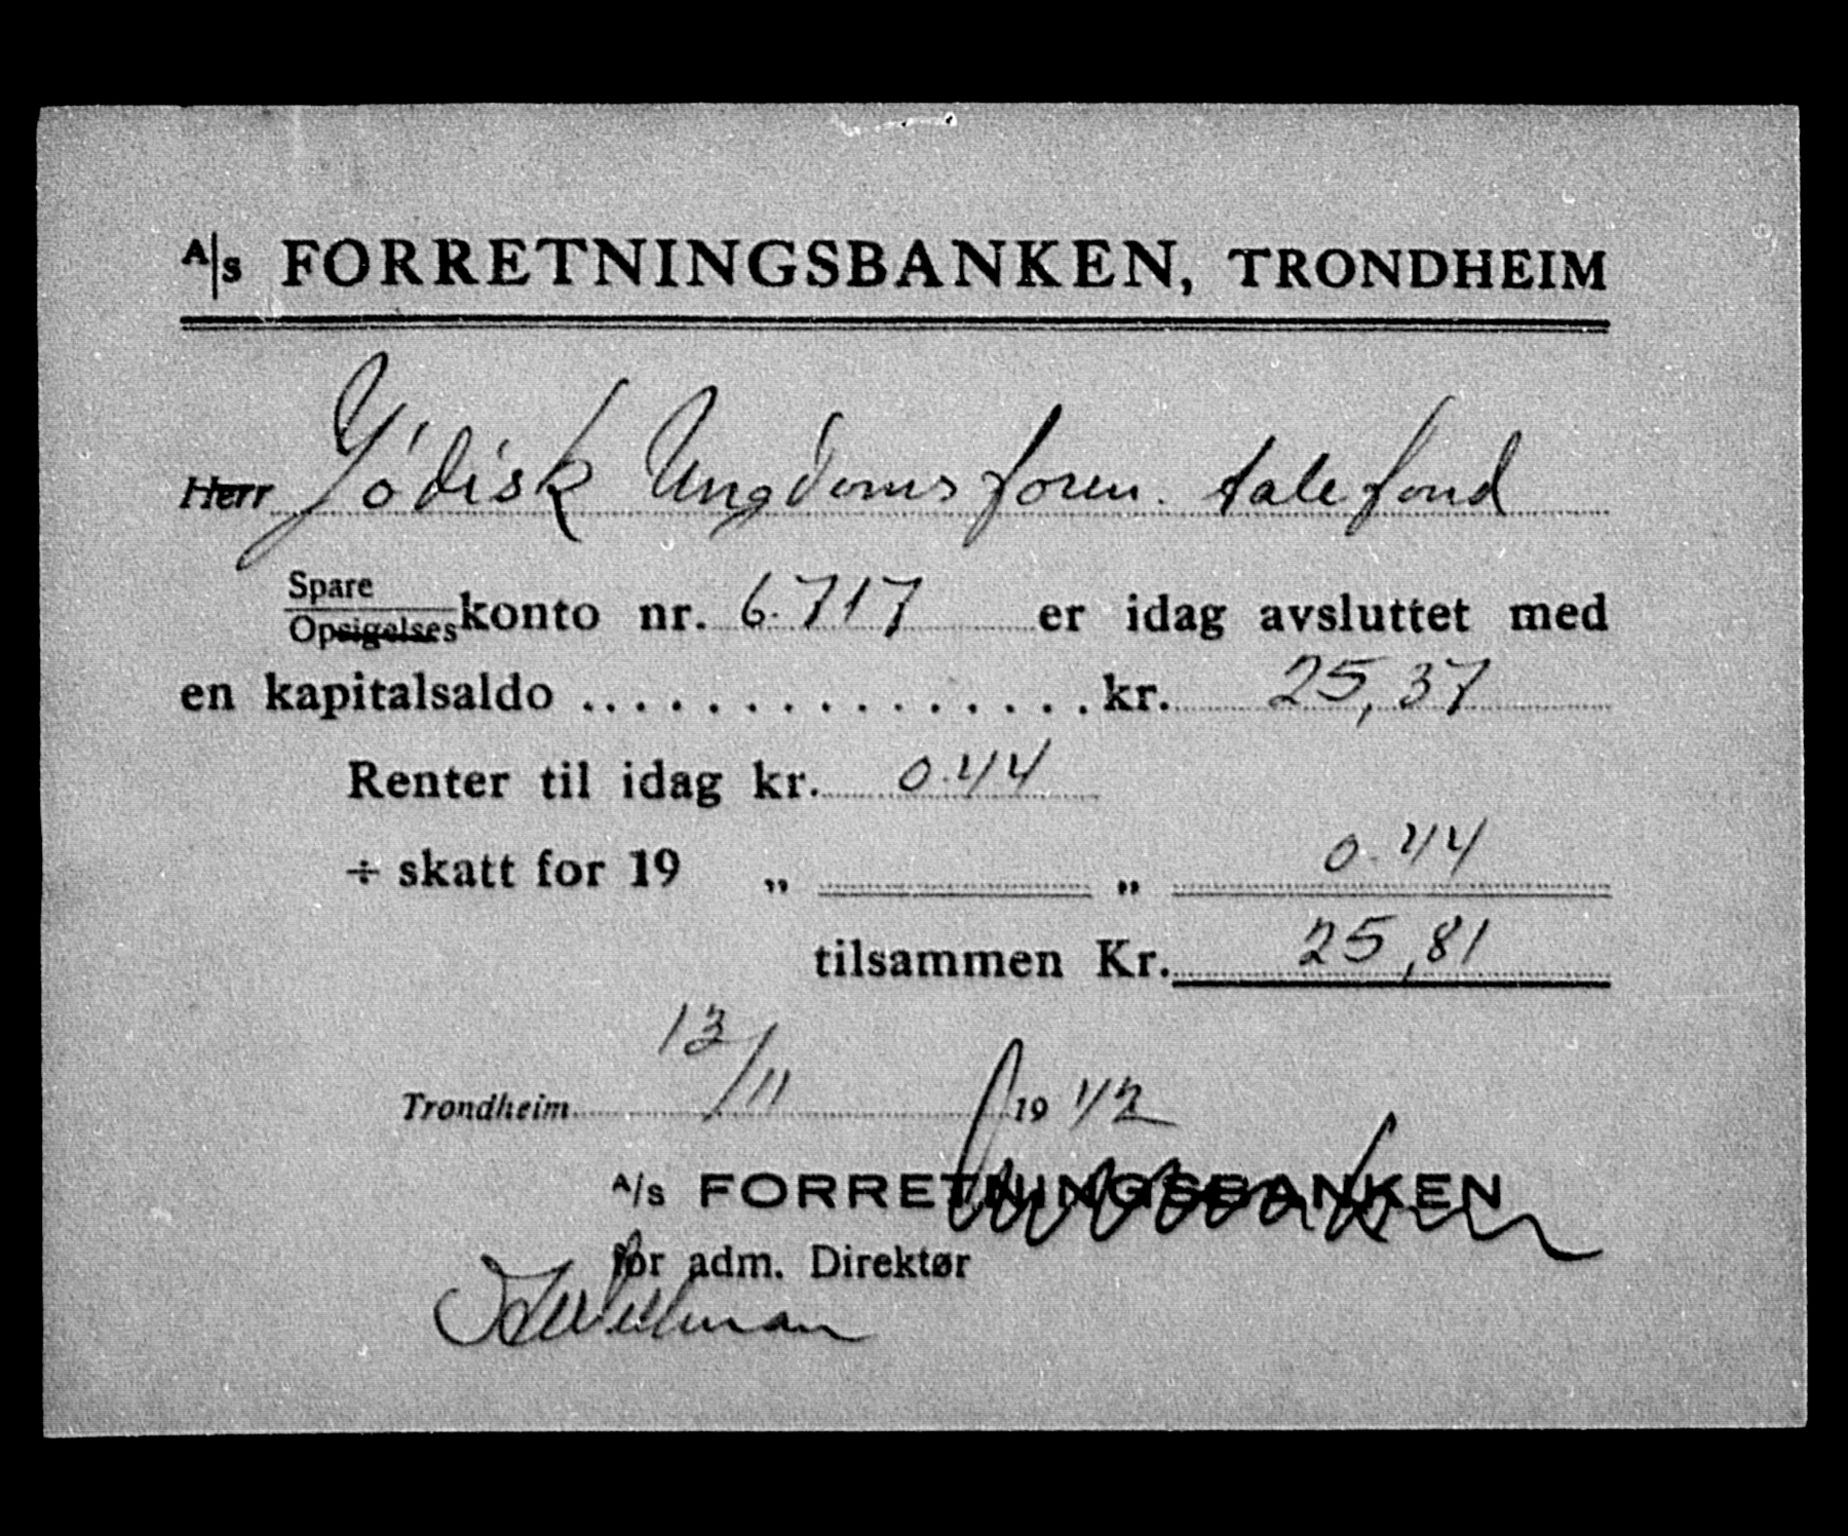 A/s FORRETNINGSBANKEN, TRONDHEIM
Herr Jödisk Ungdomsforen. talefond
Spare
Opsigelses konto nr. 6.717 er idag avsluttet med
en kapitalsaldo ............... kr. 25,37
Renter til idag kr. 0.44
÷ skatt for 19 „ „ 0.44
tilsammen Kr. 25,81
Trondheim 13/11 1942
A/s FORRETNINGSBANKEN
for adm. Direktør